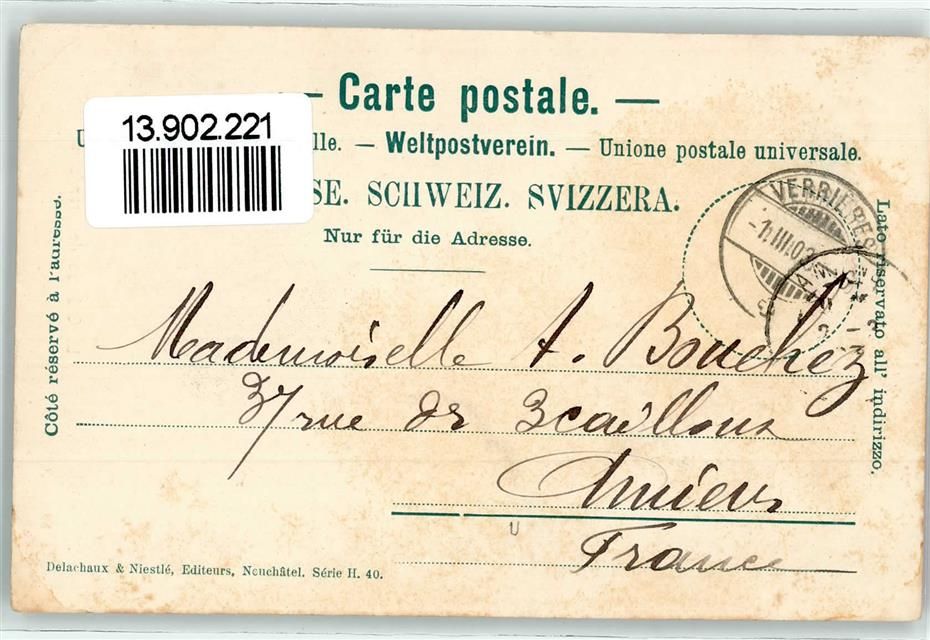 — Carte postale. —
13.902.221
U lle. — Weltpostverein. — Unione postale universale.
SE. SCHWEIZ. SVIZZERA.
Nur für die Adresse.
Côté réservé à l'adresse.
Lato riservato all' indirizzo.
VERRIERES
-1.III.03
Mademoiselle A. Bouchez
37 rue de
Amiens
France
Delachaux & Niestlé, Editeurs, Neuchâtel. Série H. 40.